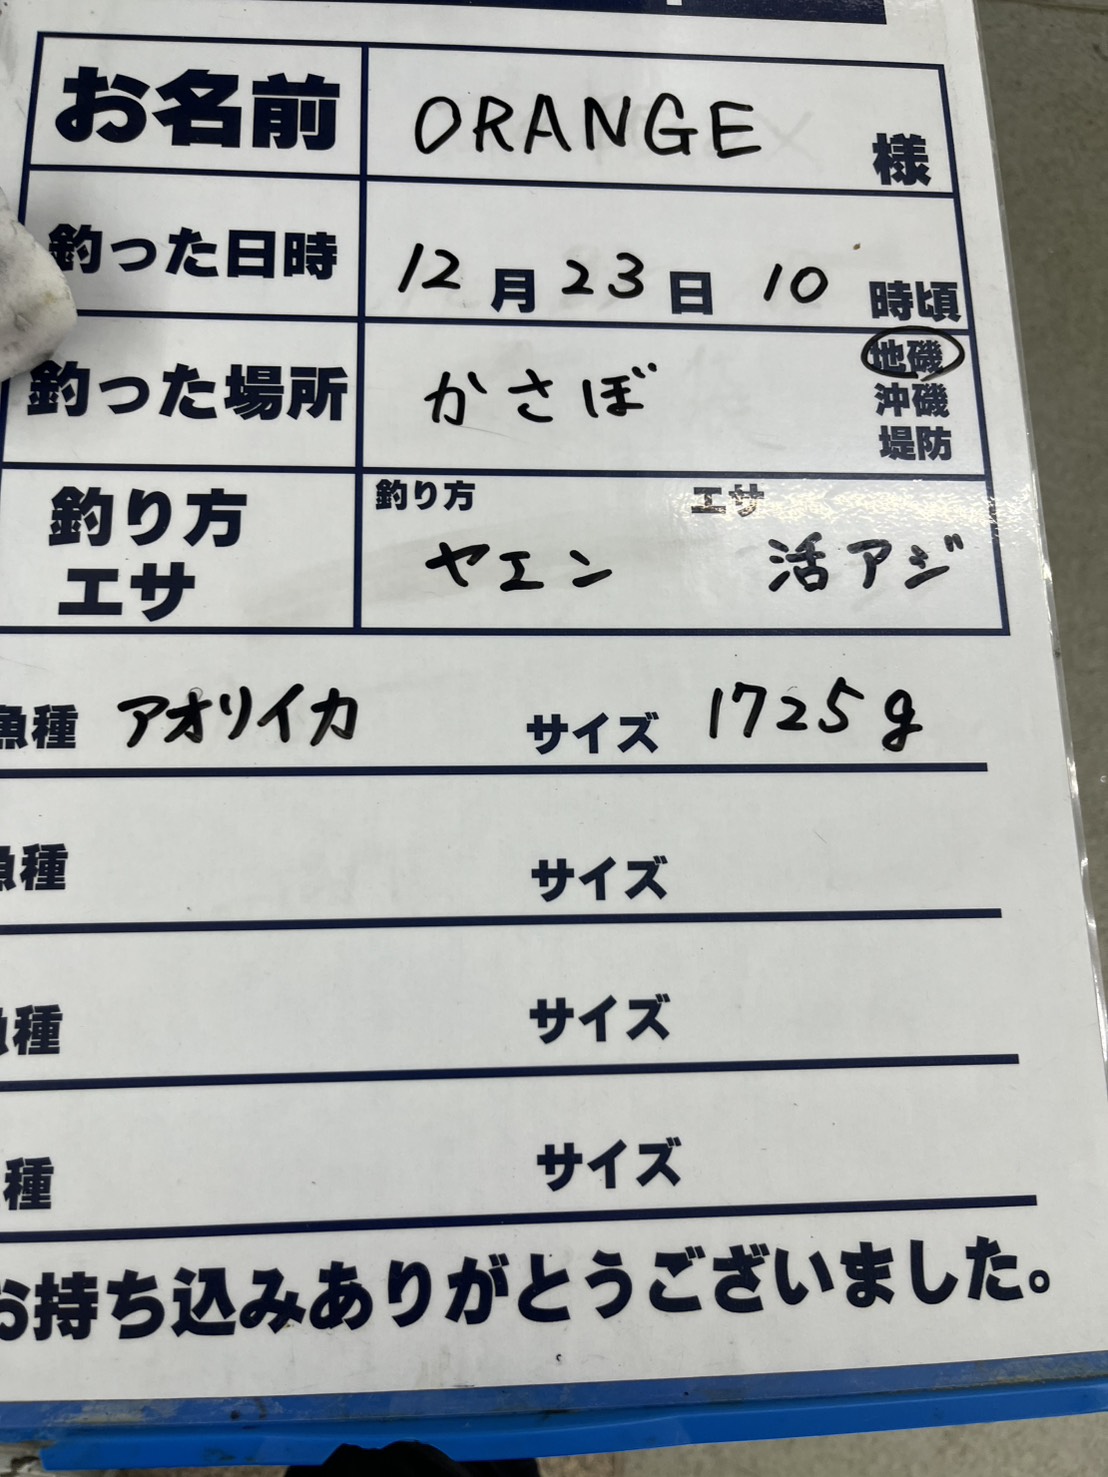 お名前 ORANGE 様
釣った日時 12月23日 10時頃
釣った場所 かさぼ 地磯
沖磯
堤防
釣り方 エサ
釣り方
エサ
ヤエン 活アジ
魚種 アオリイカ サイズ 1725g
魚種 サイズ
魚種 サイズ
種 サイズ
お持ち込みありがとうございました。